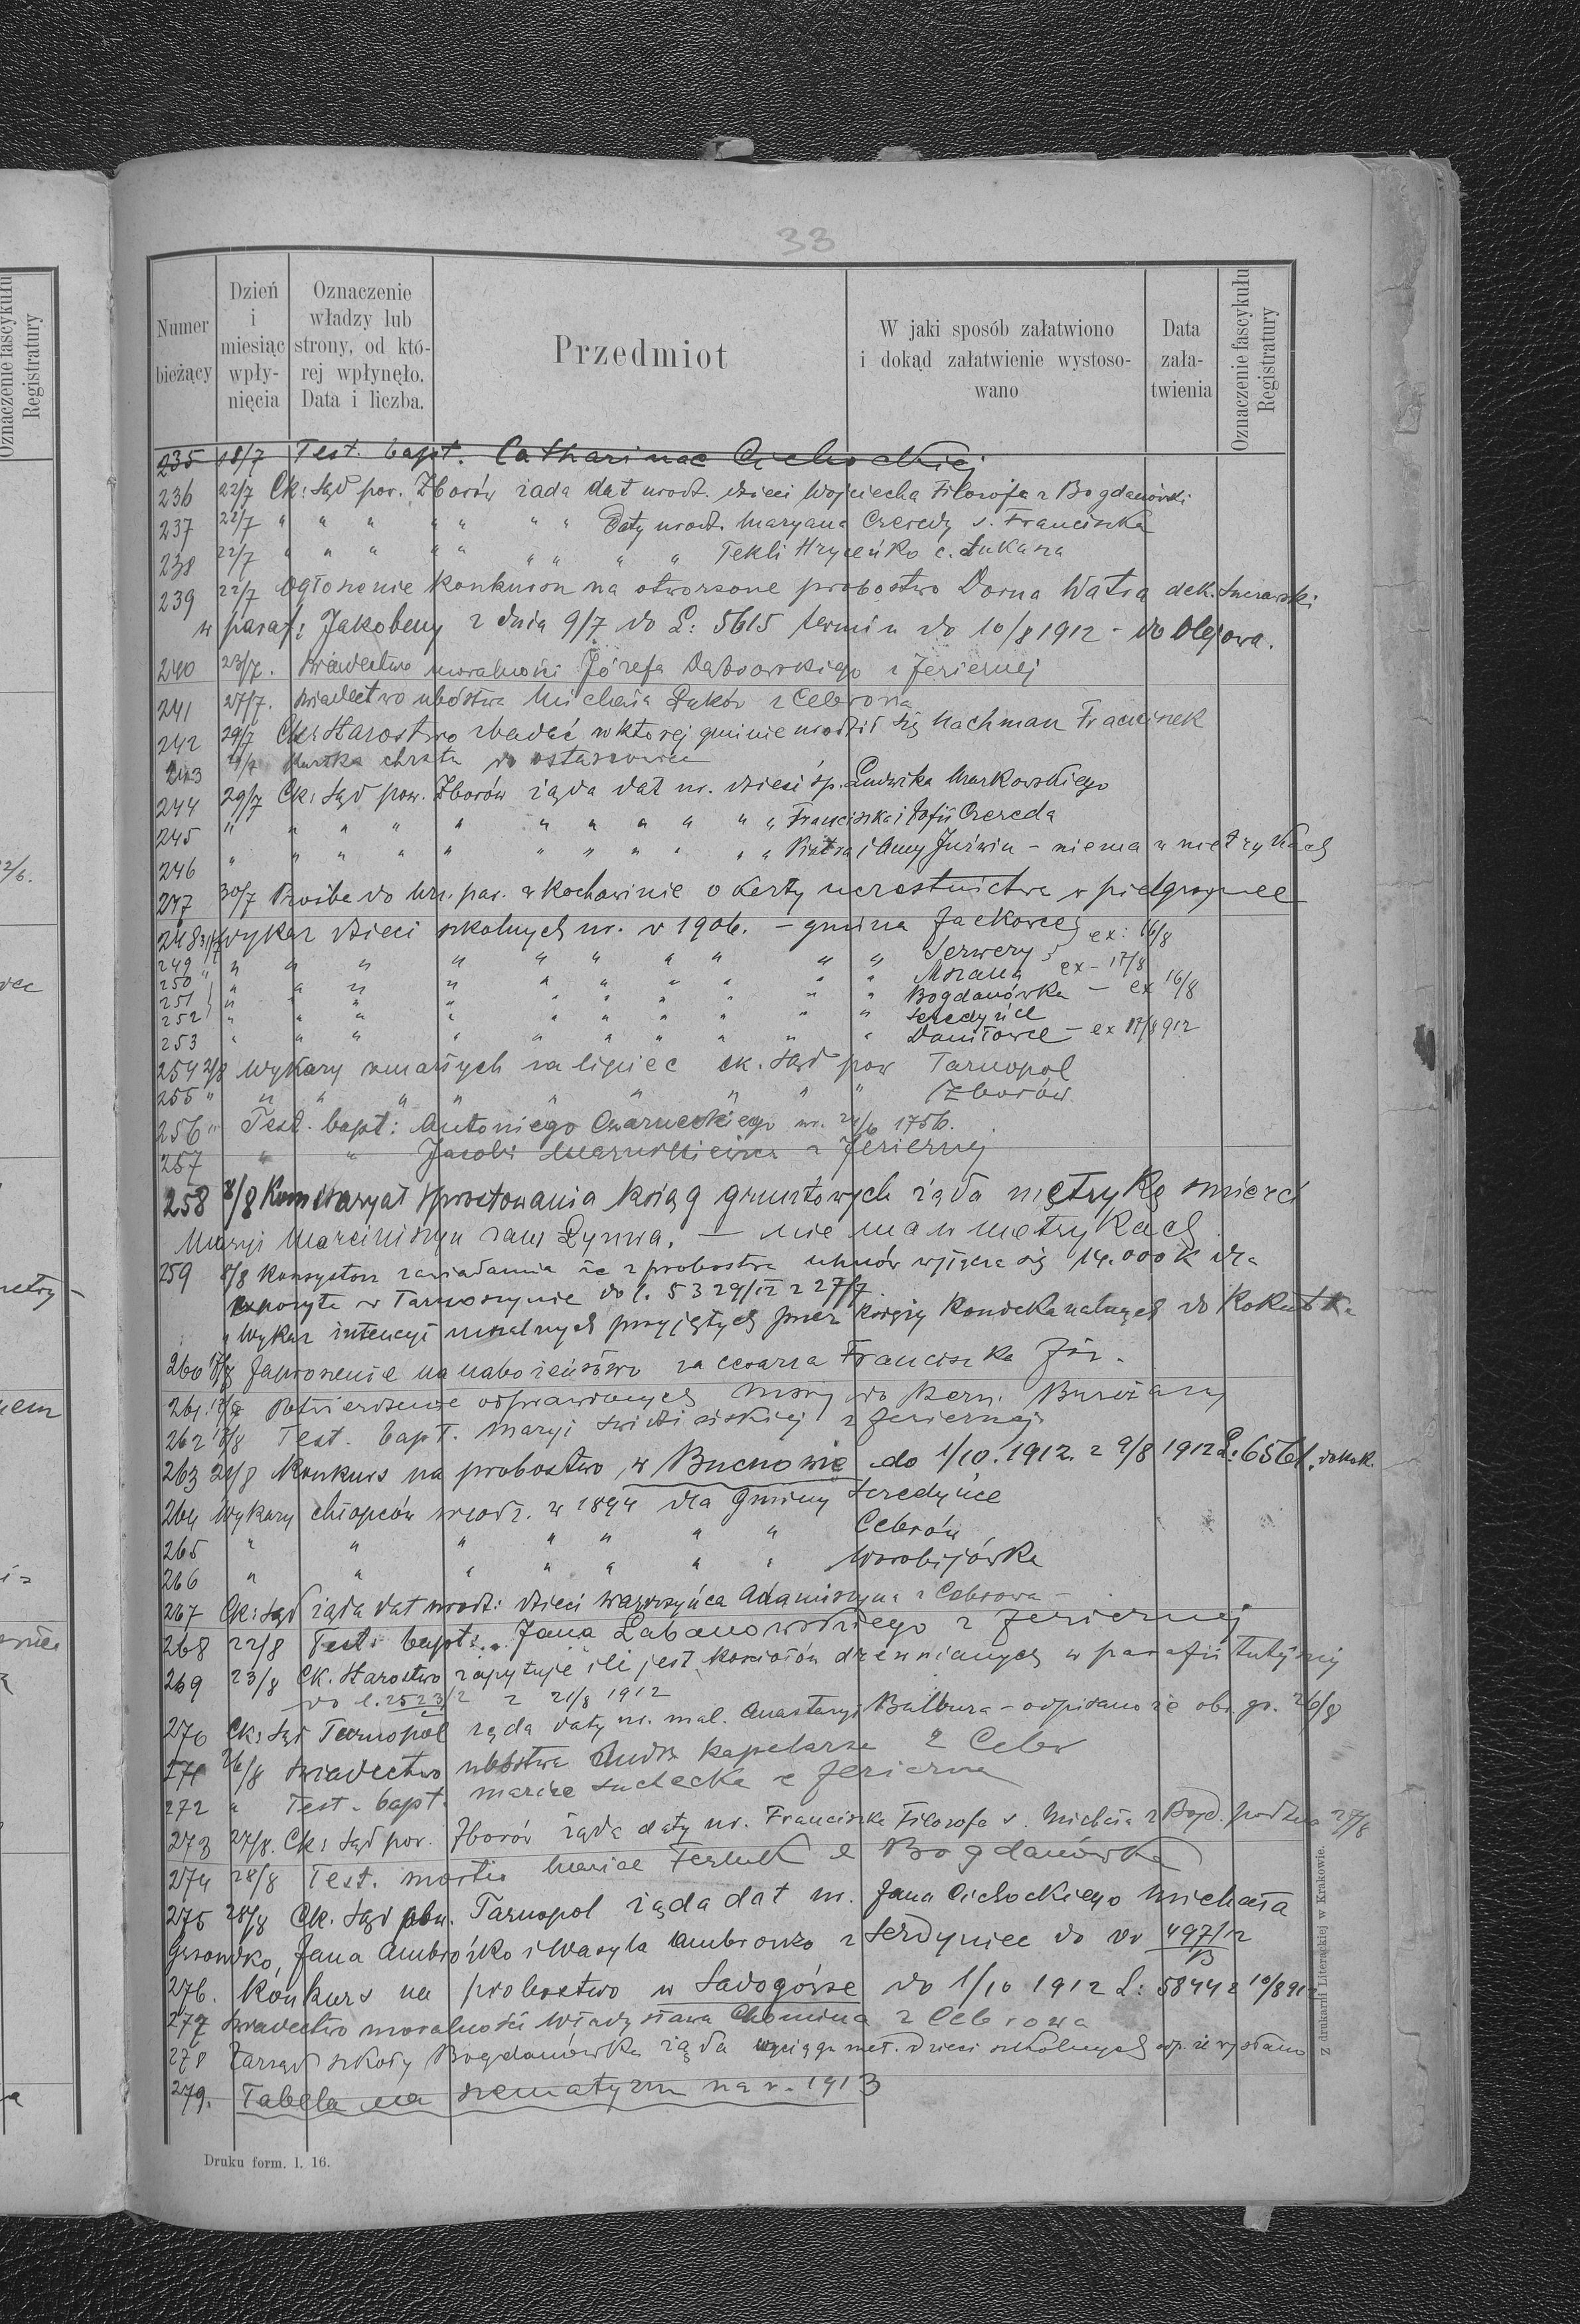 33
Numer bieżący
Dzień i miesiąc wpły- nięcia
Oznaczenie władzy lub strony, od któ- rej wpłynęło. Data i liczba.
Przedmiot
W jaki sposób załatwiono i dokąd załatwienie wystoso- wano
Data zała- twienia
Oznaczenie fascykułu Registratury
235 18/7 Test. bapt. Catharinae Cichockiej
236 22/7 Ck: Sąd pow. Zborów żąda dat urodz. dzieci Wojciecha Filozofa z Bogdanówki
237 22/7 " " " " " " " Daty urodz. Maryana Czeredy s. Franciszka
238 22/7 " " " " " " " " " Tekli Hryceńko c. Łukasza
239 22/7 Ogłoszenie konkursu na otworzone probostwo Dorna Watra dek.
w paraf: Jakobeny z dnia 9/7 do L: 5615 termin do 10/8 1912 - do Olejowa.
240 23/7. świadectwo moralności Józefa Dąbrowskiego z Jeziernej
241 27/7. świadectwo ubóstwa Michała z Cebrowa
242 29/7 Ck: Starostwo zbadać w której gminie urodził się Nachman
243 chrztu do
244 29/7 Ck: Sąd pow. Zborów żąda dat ur. dzieci śp. Ludwika Markowskiego
245 " " " " " " " " " " " Franciszka i Zofii Czereda
246 " " " " " " " " " " " Piotra i Anny Juźwin - niema w metrykach
247 30/7 Prośba do Urz. par. w Kochawinie o karty uczestnictwa w pielgrzymce
248 31/7 Wykaz dzieci szkolnych ur. w 1906. - gmina Jackowce ex: 16/8
249 " " " " " " " " " " " Serwery ex - 17/8
250 " " " " " " " " " " Mszana
251 " " " " " " " " " " Bogdanówka - ex 16/8
252 " " " " " " " " " " Seredyńce
253 " " " " " " " " " " Daniłowce - ex 17/8 912
254 2/8 Wykazy zmarłych za lipiec ck. Sąd pow Tarnopol
255 " " " " " " " " " Zborów
256 " Test. bapt: Antoniego Czarneckiego ur. 1756.
257 " " Jacobi z Jeziernej
258 8/8 Komisaryat sprostowania ksiąg gruntowych żąda metrykę śmierci
Maryi Marciniszyn zam - nie ma w metrykach
259 8/8 Konsystorz zawiadamia że z probostwa uhnów wyłącza się 14.000 K dla
expozytu w Tarnoszynie do l. 5329/12 z 27/7
" Wykaz intencyi mszalnych przyjętych przez księży kondekanalnych do
260 Zaproszenie na nabożeństwo za cesarza Franciszka Józ.
261. Potwierdzenie odprawionych mszy do
262 Test. bapt. Maryi z Jeziernej
263 21/8 Konkurs na probostwo w Bucnowie do 1/10. 1912. z 9/8 1912 L: 6561.
264 Wykazy chłopców urodz. w 1894 dla gminy Seredyńce
265 " " " " " " " Cebrów
266 " " " " " " " Worobijówka
267 Ck: Sąd żąda dat urodz: dzieci Wawrzyńca Adamiszyna z Cebrowa -
268 22/8 Test. bapt: Jana Łabanowskiego z Jeziernej
269 23/8 Ck. Starostwo zapytuje ile jest kościołów drewnianych w parafii tutejszej
do l. 2523/2 z 21/8 1912
270 Ck: Sąd Tarnopol żąda daty ur. mal. Anastazyi Balbura - odpisano że obr. gr. 26/8
271 26/8 świadectwo ubóstwa kapelarza z Cebr
272 " Test. bapt. Mariae Suchecka e Jezierna
273 27/8. Ck: Sąd pow. Zborów żąda daty ur. Franciszka Filozofa s. Michała z Bogd. 27/8
274 28/8 Test. mortis Mariae e Bogdanówka
275 28/8 Ck. Sąd pow. Tarnopol żąda dat ur. Jana Cichockiego Michała
Jana Ambrożko i Wasyla Ambrożko z Serdyniec do 497/12
276. Konkurs na probostwo w Sadogórze do 1/10 1912 L: 5844 z 10/8 912
277 świadectwo moralności Władysława Chomina z Cebrowa
278 Zarząd szkoły Bogdanówka żąda wyciągu met. dzieci szkolnych odp. że wysłano
279. Tabela na szematyzm na r. 1913
Druku form. l. 16.
Z drukarni Literackiej w Krakowie.
Oznaczenie fascykułu Registratury